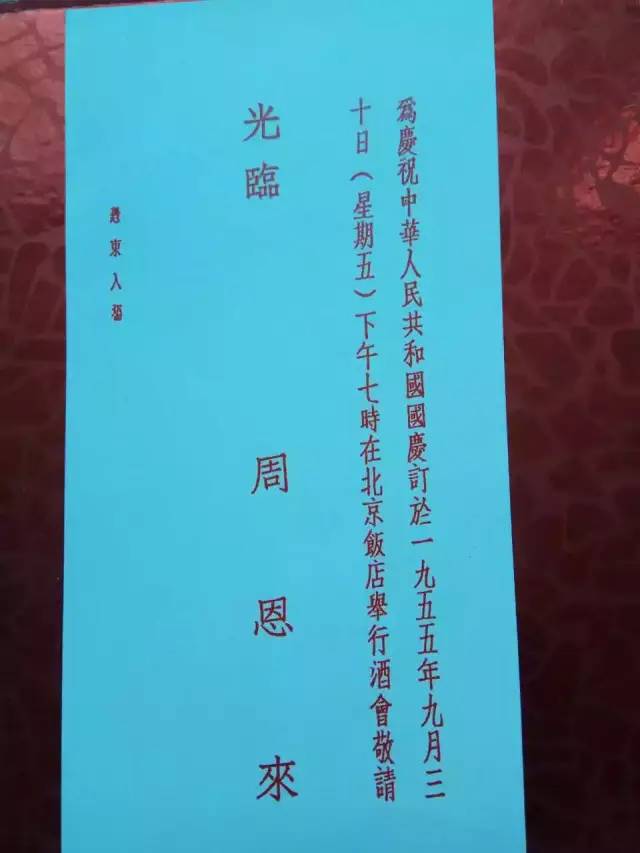 爲慶祝中華人民共和國國慶訂於一九五五年九月三
十日（星期五）下午七時在北京飯店舉行酒會敬請
光臨
周恩來
憑柬入場